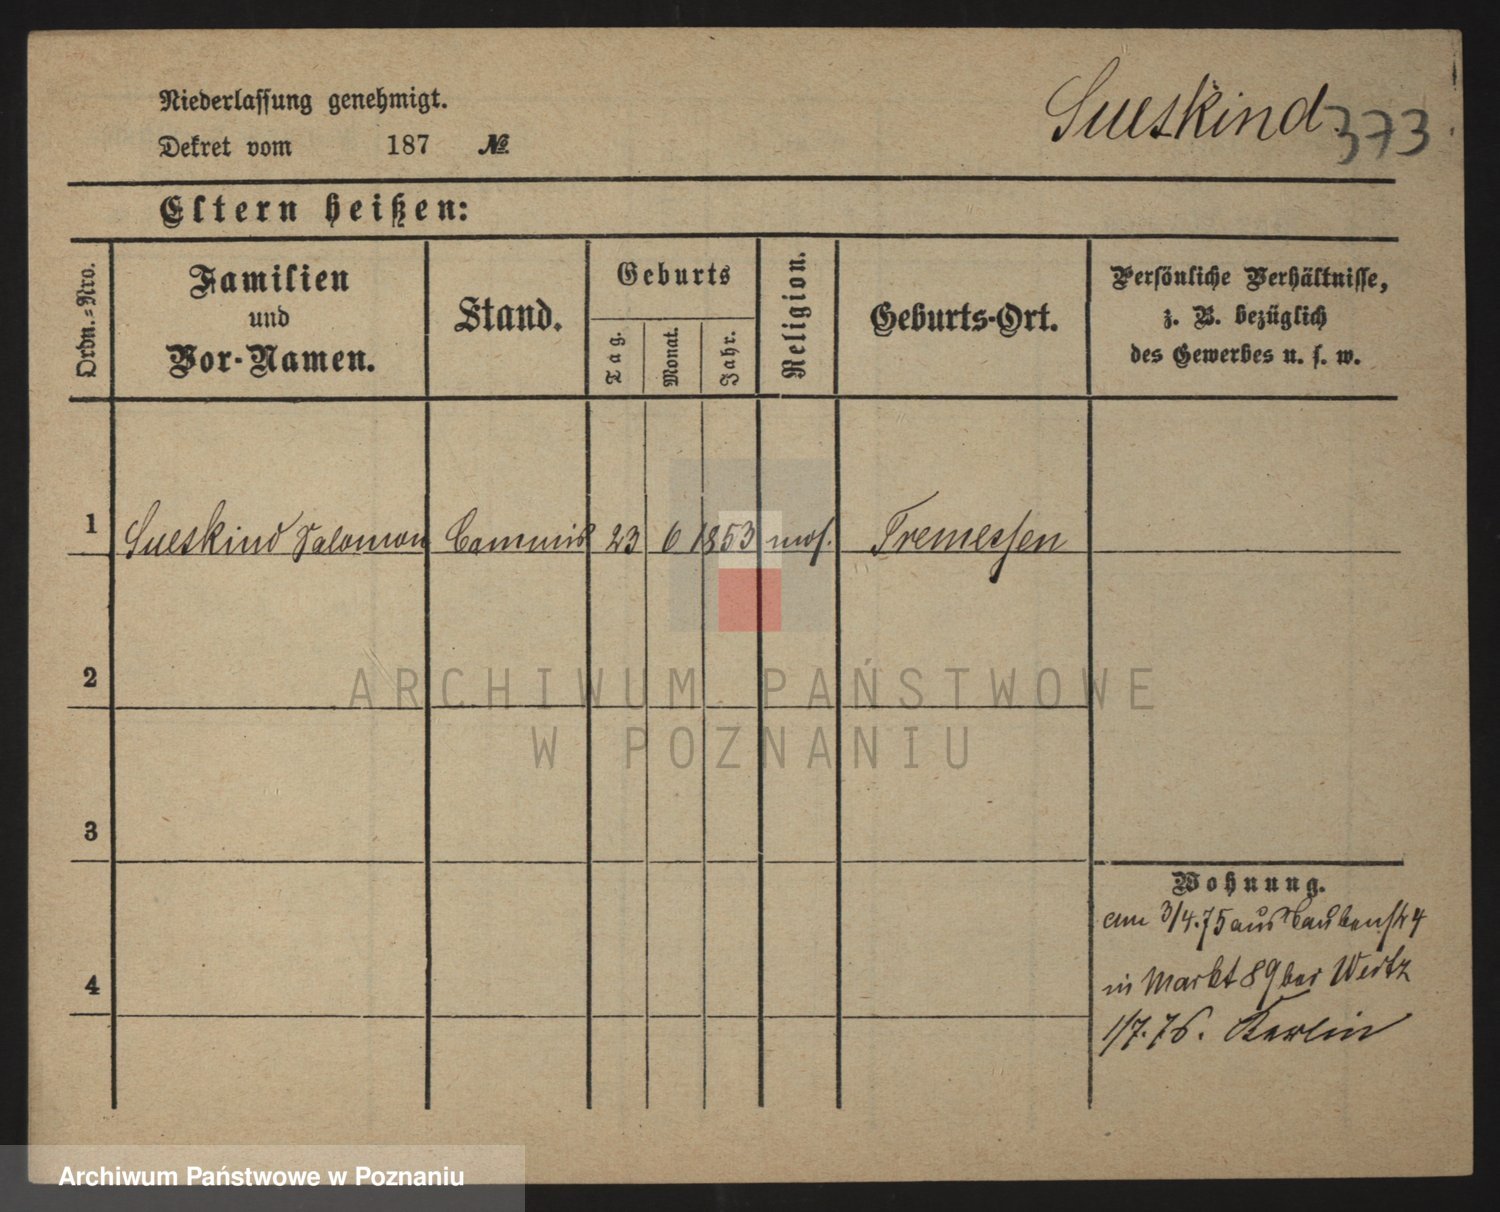 Sueskind 373.
Niederlassung genehmigt.
Dekret vom 187 №
Eltern heißen:
Ordn.-Nro.
Familien
und
Vor-Namen.
Stand.
Geburts
Tag.
Monat.
Jahr.
Religion.
Geburts-Ort.
Persönliche Verhältnisse,
z. B. bezüglich
des Gewerbes u. s. w.
1 Sueskind Salomon Commis 23 6 1853 mos. Tremessen
2
3
4
Wohnung.
am 3/4.75 aus Taubenstr 4
in Markt 89 bei Weitz
1/7.76. Berlin
ARCHIWUM PAŃSTWOWE
W POZNANIU
Archiwum Państwowe w Poznaniu